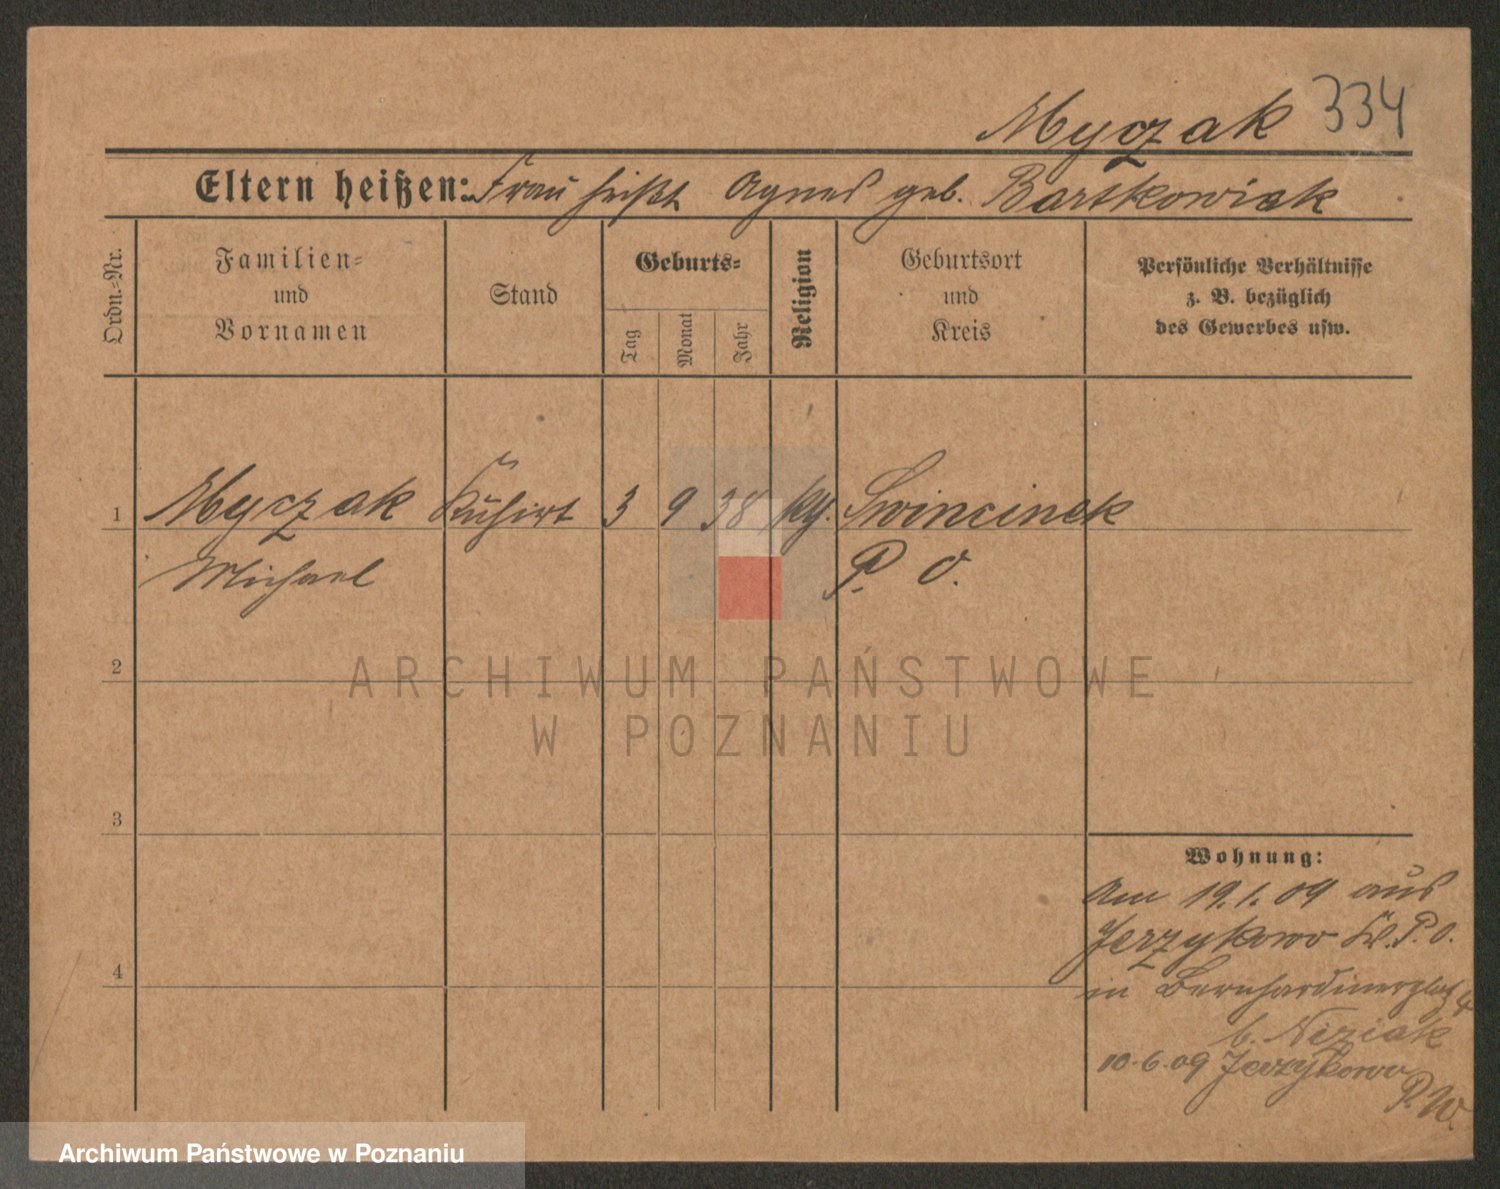 Myczak 334
Eltern heißen: Frau heißt Agnes geb. Bartkowiak
Ordn.-Nr.
Familien-
und
Vornamen
Stand
Geburts-
Tag
Monat
Jahr
Religion
Geburtsort
und
Kreis
Persönliche Verhältnisse
z. B. bezüglich
des Gewerbes usw.
1 Myczak Kuhirt 3 9 38 Swincinek
Michael P. O.
2
ARCHIWUM PAŃSTWOWE
W POZNANIU
3
Wohnung:
Am 19.1.09 aus
Jerzykowo K. P. O.
4
in Bernhardinerplatz 4
b. Niziak
10.6.09 Jerzykowo
P. W.
Archiwum Państwowe w Poznaniu